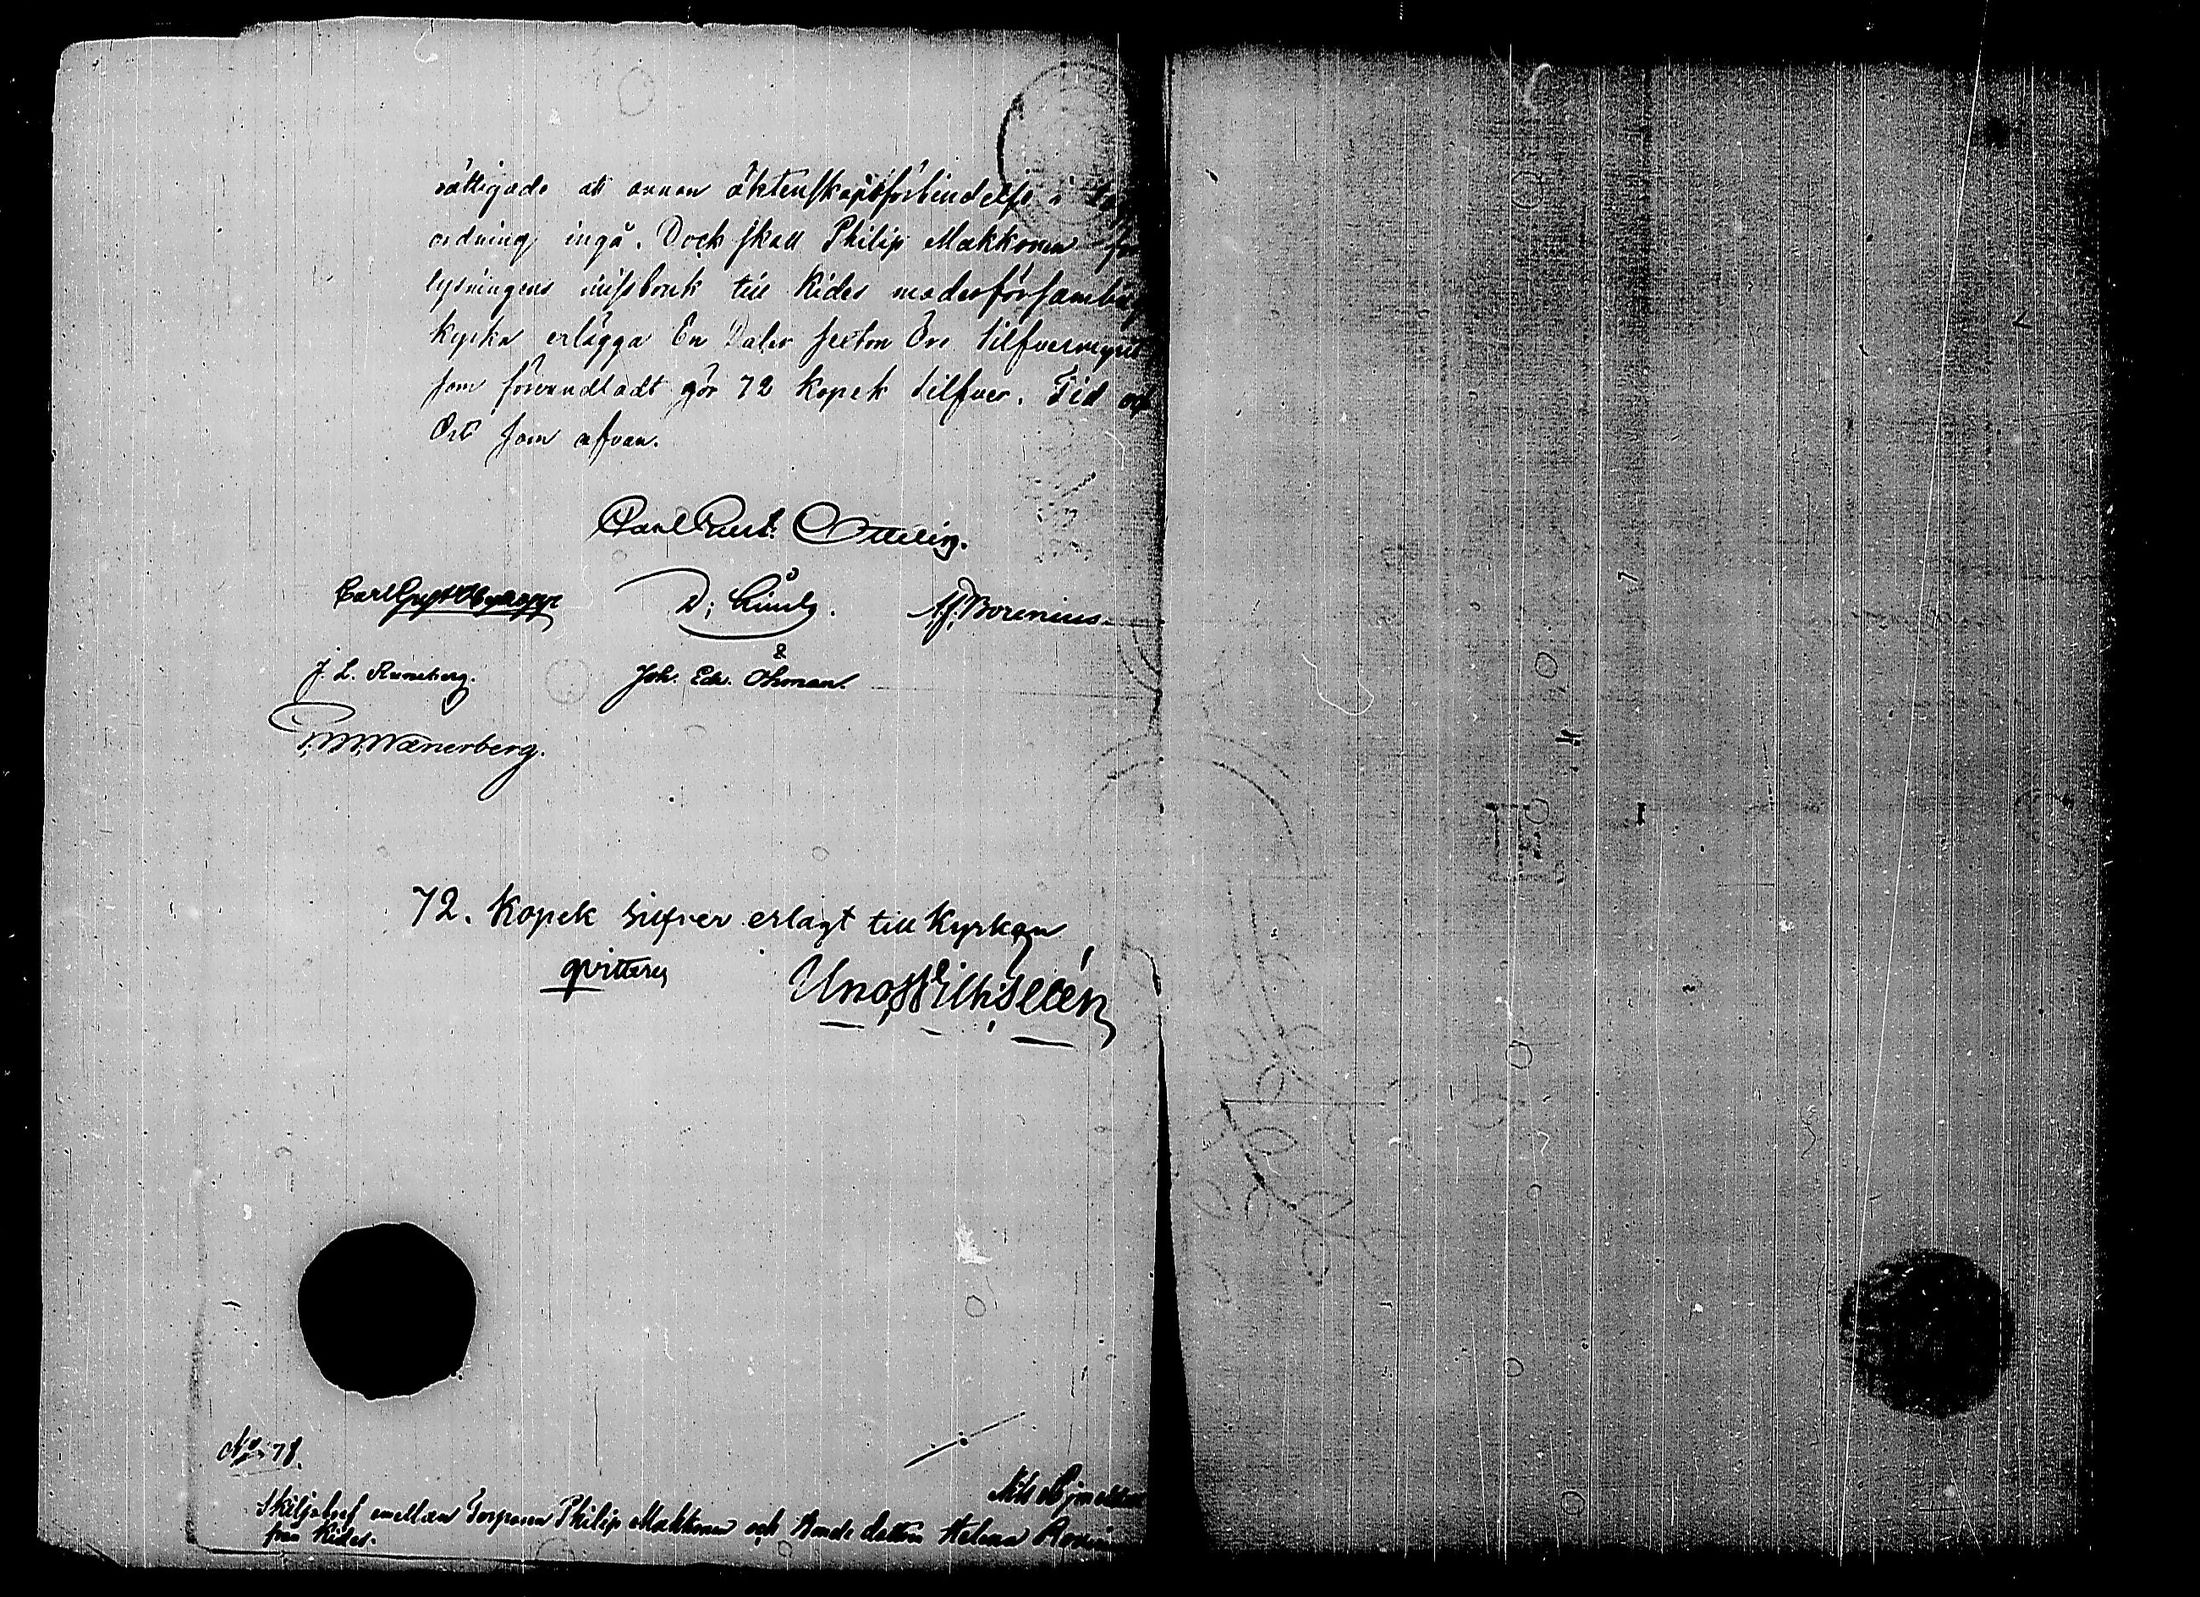 rättigade att annan äktenskapsförbindelse i
ordning ingå. Dock skall Philip Makkonen för
lysningens missbruk till Kides moderförsamling
kyrka erlägga En Daler sexton Öre Silfvermynt
som förvandladt gör 72 Kopek Silfver. Tid och
Ort som ofvan.
Carl Gust. Ottelin.
Carl Gust.
D:
Borenius.
J. L. Runeberg.
Joh. Edv. Öhman.
Wænerberg.
72. Kopek Silfver erlagt till Kyrkan
qvitterar
Uno Wilh:
No 78.
Nils
Skiljobref emellan Torparen Philip Makkonen och Bonde dottren Helena
från Kides.